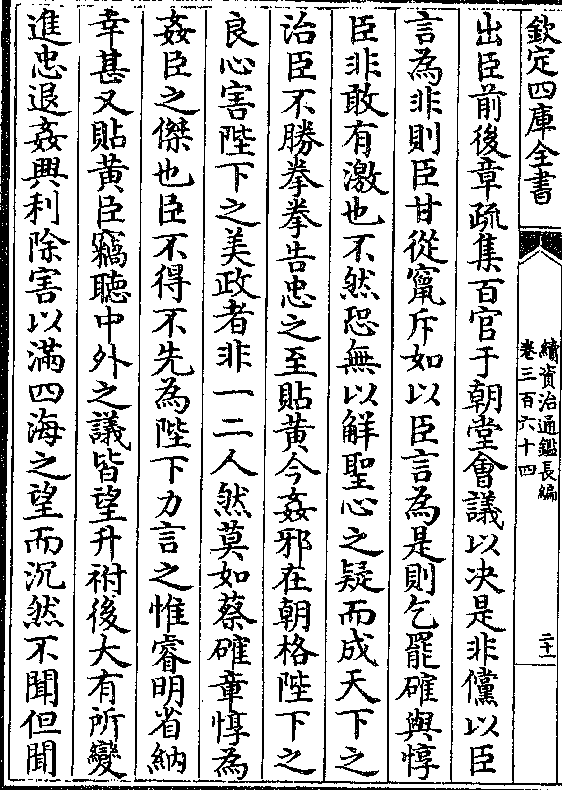 欽定四庫全書
續資治通鑑長編
卷三百六十四
二十一
出臣前後章疏集百官于朝堂會議以決是非儻以臣
言為非則臣甘從竄斥如以臣言為是則乞罷確與惇
臣非敢有激也不然恐無以解聖心之疑而成天下之
治臣不勝拳拳告忠之至貼黄今姦邪在朝格陛下之
良心害陛下之美政者非一二人然莫如蔡確章惇為
姦臣之傑也臣不得不先為陛下力言之惟睿明省納
幸甚又貼黄臣竊聽中外之議皆望升祔後大有所變
進忠退姦興利除害以滿四海之望而沉然不聞但聞